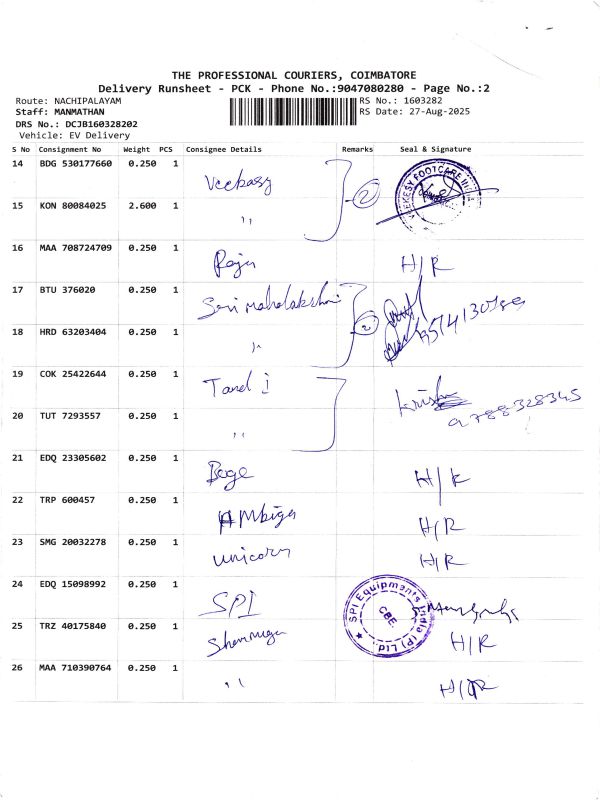 THE PROFESSIONAL COURIERS, COIMBATORE
Delivery Runsheet - PCK - Phone No.:9047080280 - Page No.:2
Route: NACHIPALAYAM
Staff: MANMATHAN
DRS No.: DCJB160328202
Vehicle: EV Delivery
RS No.: 1603282
RS Date: 27-Aug-2025
S No Consignment No Weight PCS Consignee Details Remarks Seal & Signature
14 BDG 530177660 0.250 1 2
15 KON 80084025 2.600 1 ,,
16 MAA 708724709 0.250 1 Raja H/R
17 BTU 376020 0.250 1 Sri mahalakshmi 2
18 HRD 63203404 0.250 1 ,,
19 COK 25422644 0.250 1
20 TUT 7293557 0.250 1 ,, 9788328345
21 EDQ 23305602 0.250 1 H/R
22 TRP 600457 0.250 1 AMbiga H/R
23 SMG 20032278 0.250 1 unicorn H/R
24 EDQ 15098992 0.250 1 SPI SPI Equipments India (P) Ltd. CBE.
25 TRZ 40175840 0.250 1 H/R
26 MAA 710390764 0.250 1 ,, H/R